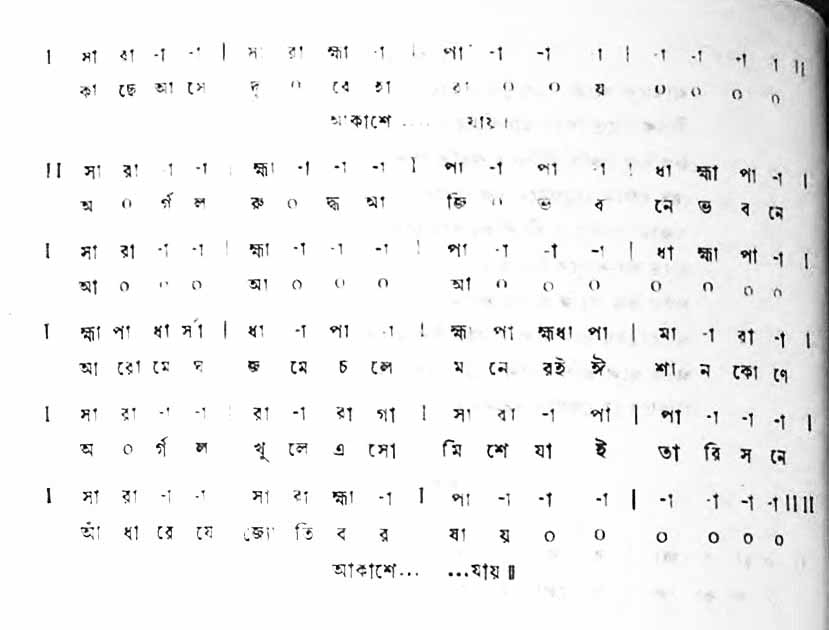 I সা রা -া -া | সা রা হ্মা -া I পা -া -া -া | -া -া -া -া II
কা ছে আ সে দূ ০ রে তা রা ০ ০ য় ০ ০ ০ ০
আকাশে .... যায়।
II সা রা -া -া | হ্মা -া -া -া I পা -া পা -া | ধা হ্মা পা -া I
অ ০ র্গ ল রু ০ দ্ধ আ জি ০ ভ ব নে ভ ব নে
I সা রা -া -া | হ্মা -া -া -া I পা -া -া -া | ধা হ্মা পা -া I
আ ০ ০ ০ আ ০ ০ ০ আ ০ ০ ০ ০ ০ ০ ০
I হ্মা পা ধা র্সা | ধা -া পা -া I হ্মা পা হ্মধা পা | মা -া রা -া I
আ রো মে ঘ জ মে চ লে ম নে রই ঈ শা ন কো ণে
I সা রা -া -া | রা -া রা গা I সা রা -া পা | পা -া -া -া I
অ ০ র্গ ল খু লে এ সো মি শে যা ই তা রি স নে
I সা রা -া -া সা রা হ্মা -া I পা -া -া -া | -া -া -া -া II II
আঁ ধা রে যে জ্যো তি ব র ষা য় ০ ০ ০ ০ ০ ০
আকাশে... ...যায় ॥